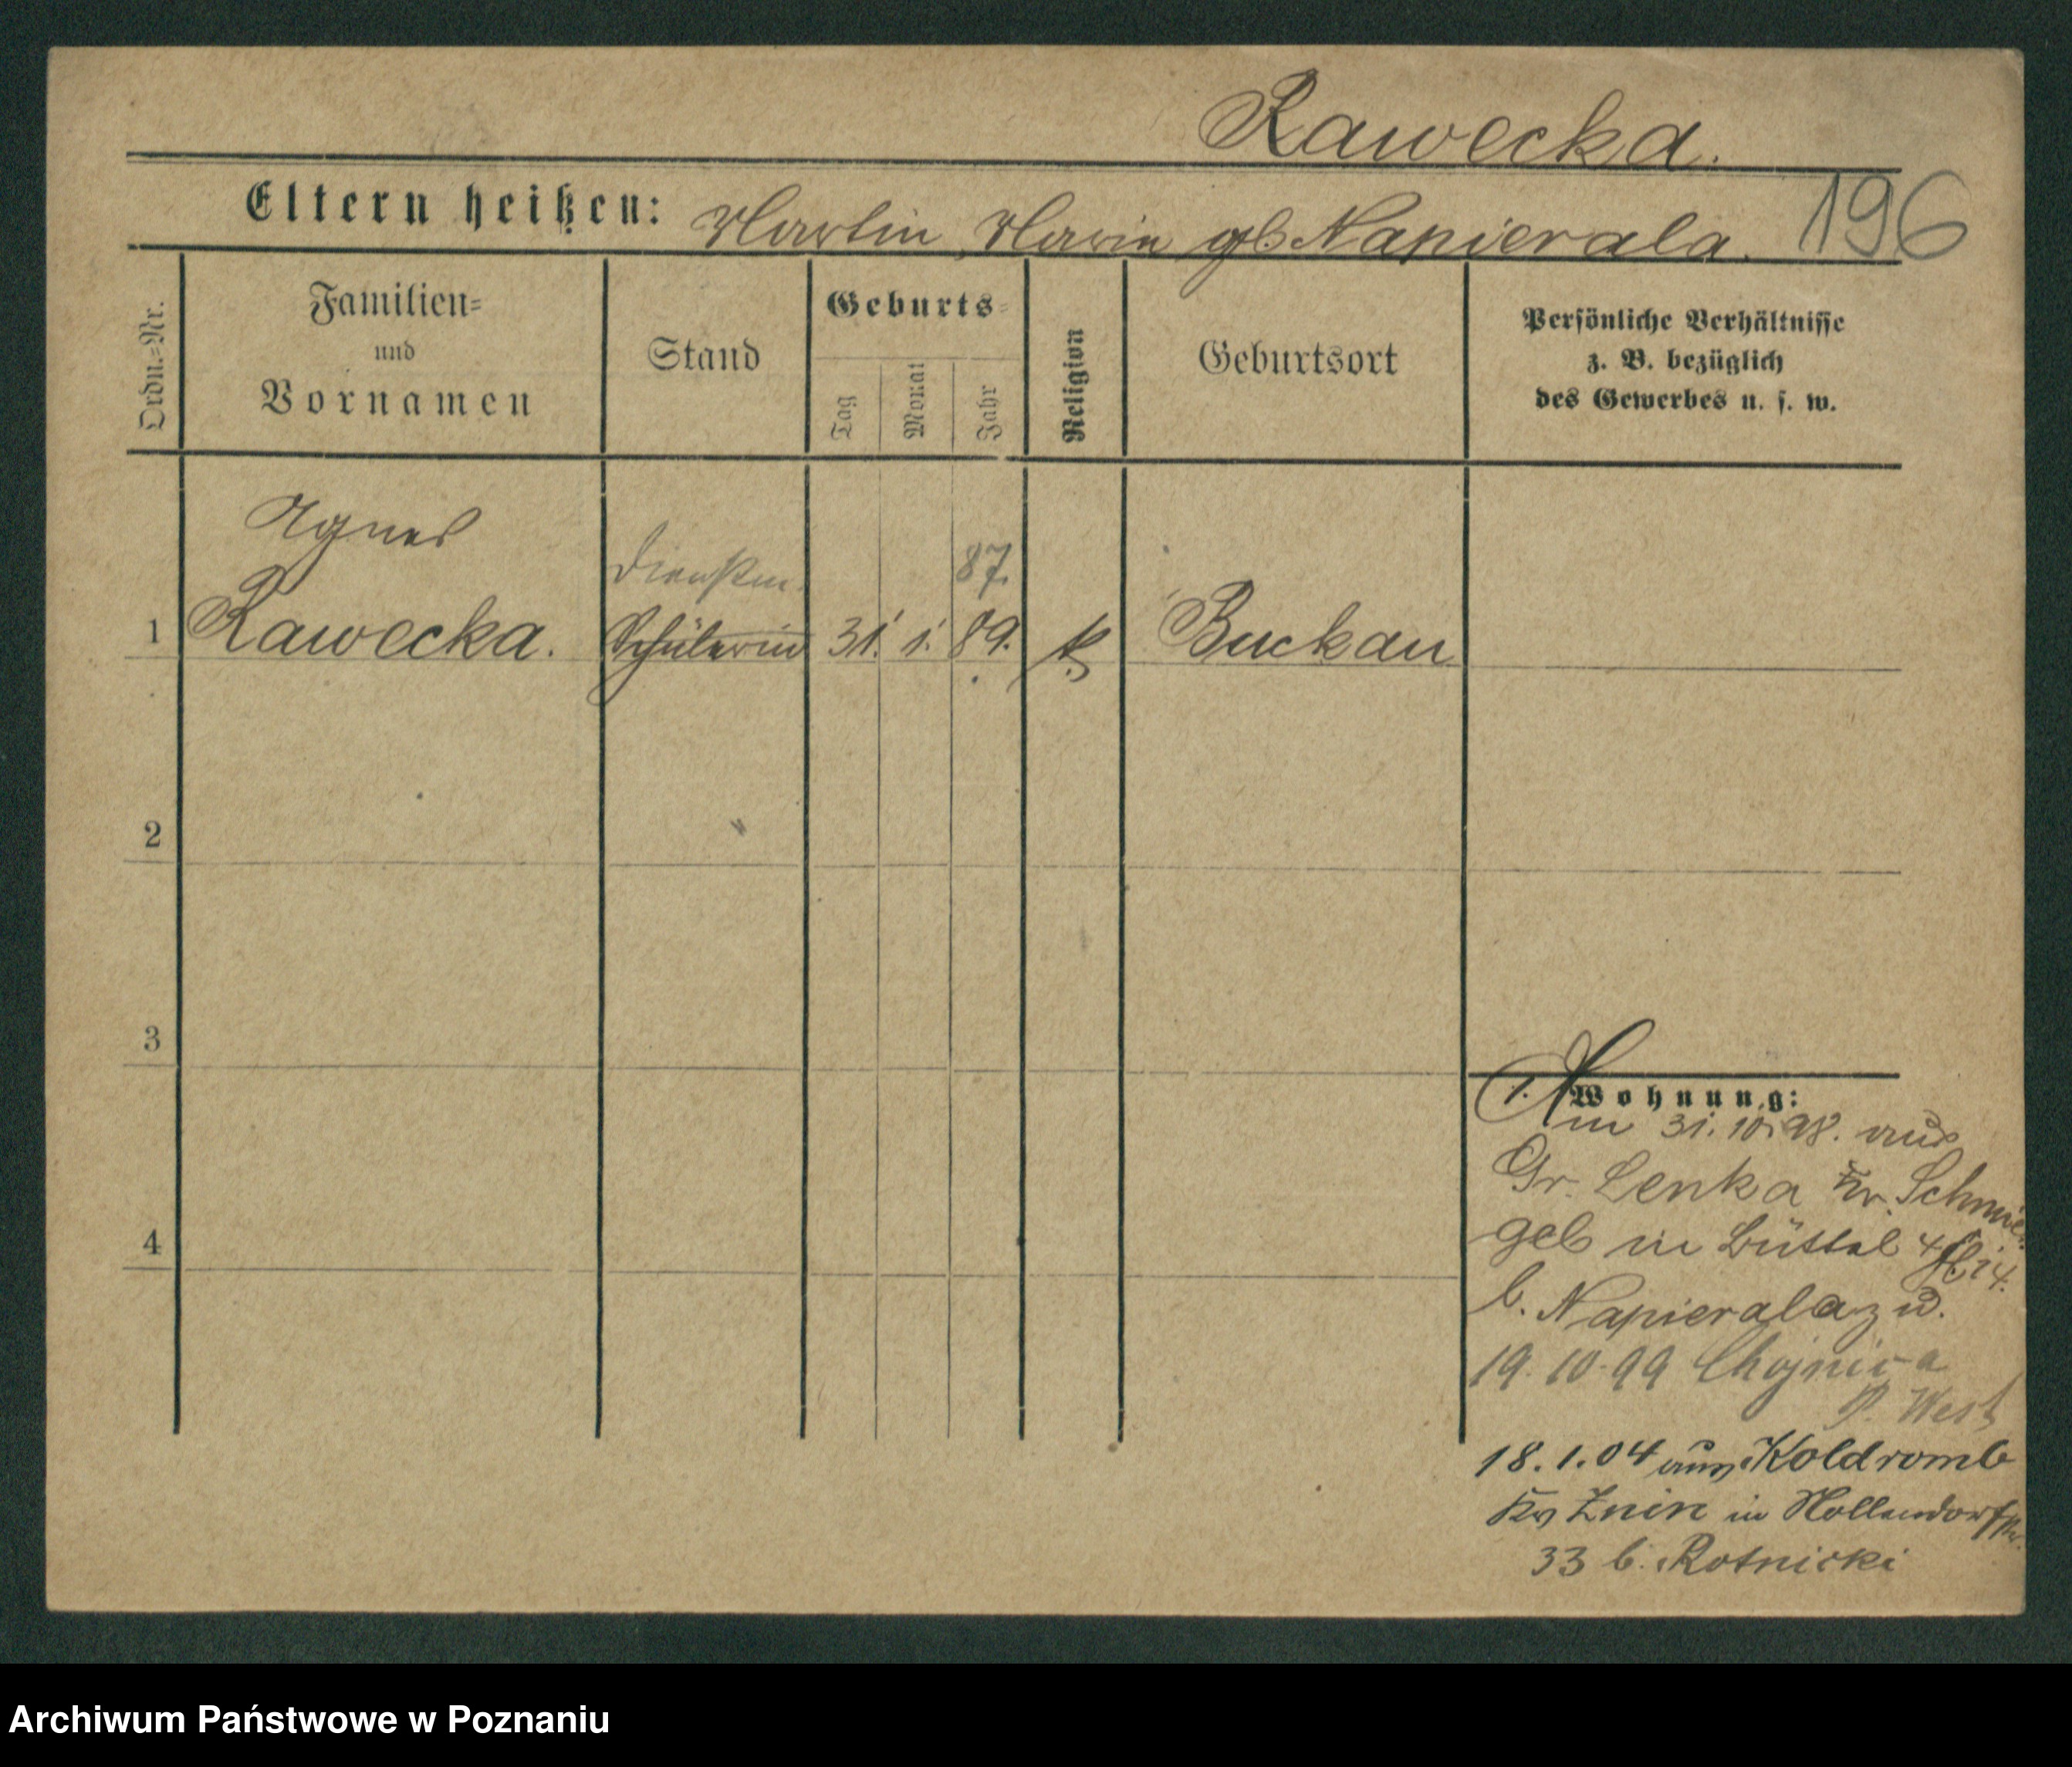 Rawecka.
Eltern heißen: Martin, Marie gb Napierala. 196
Ordn.=Nr.
Familien=
und
Vornamen
Stand
Geburts=
Tag
Monat
Jahr
Religion
Geburtsort
Persönliche Verhältnisse
z. B. bezüglich
des Gewerbes u. s. w.
Agnes
Dienstm. 87.
1 Rawecka. Schülerin 31. 1. 89. k Buckau
2
3
4
Wohnung:
1. Am 31.10.98. aus
Gr. Lenka Kr. Schmie
geb in
b. Napierala zu.
19.10.99 Chojnica
P. West
18.1.04 aus Koldromb
Kr Znin in Hollendorfstr.
33 b. Rotnicki
Archiwum Państwowe w Poznaniu